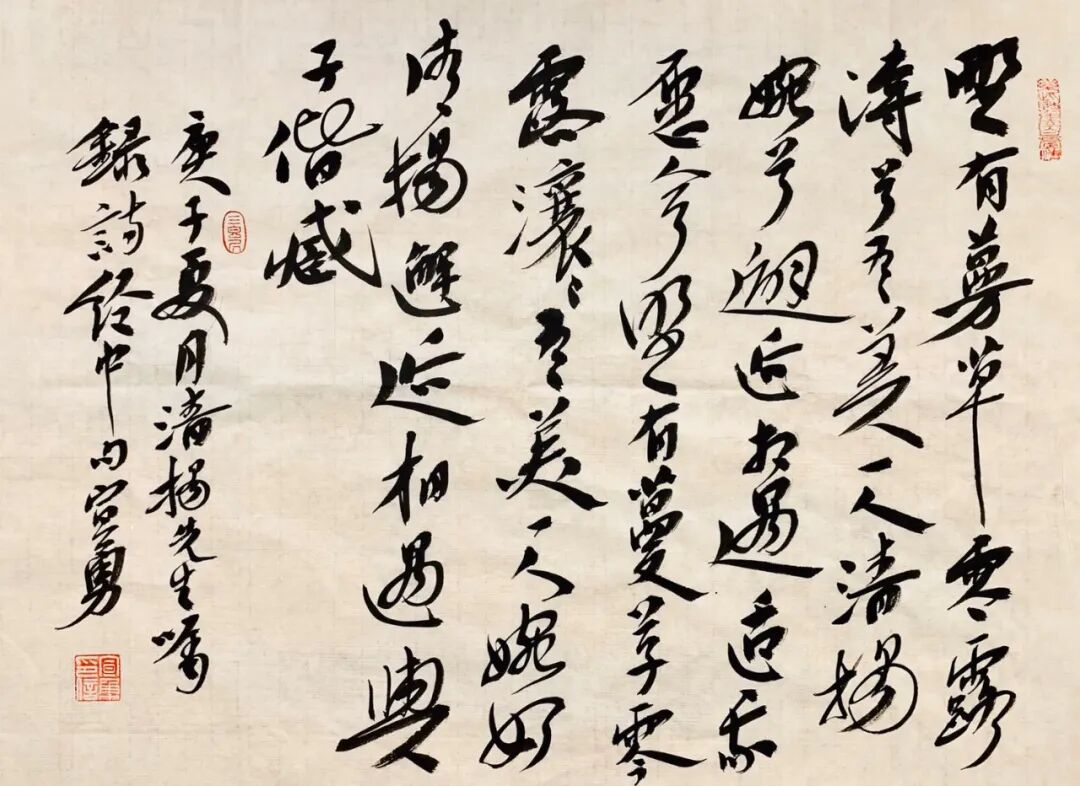 野有蔓草零露
漙兮有美一人清揚
婉兮邂逅相遇適我
愿兮野有蔓草零
露瀼々有美一人婉如
清揚邂逅相遇與
子偕臧
庚子夏月清揚先生囑
錄詩經中句宣勇